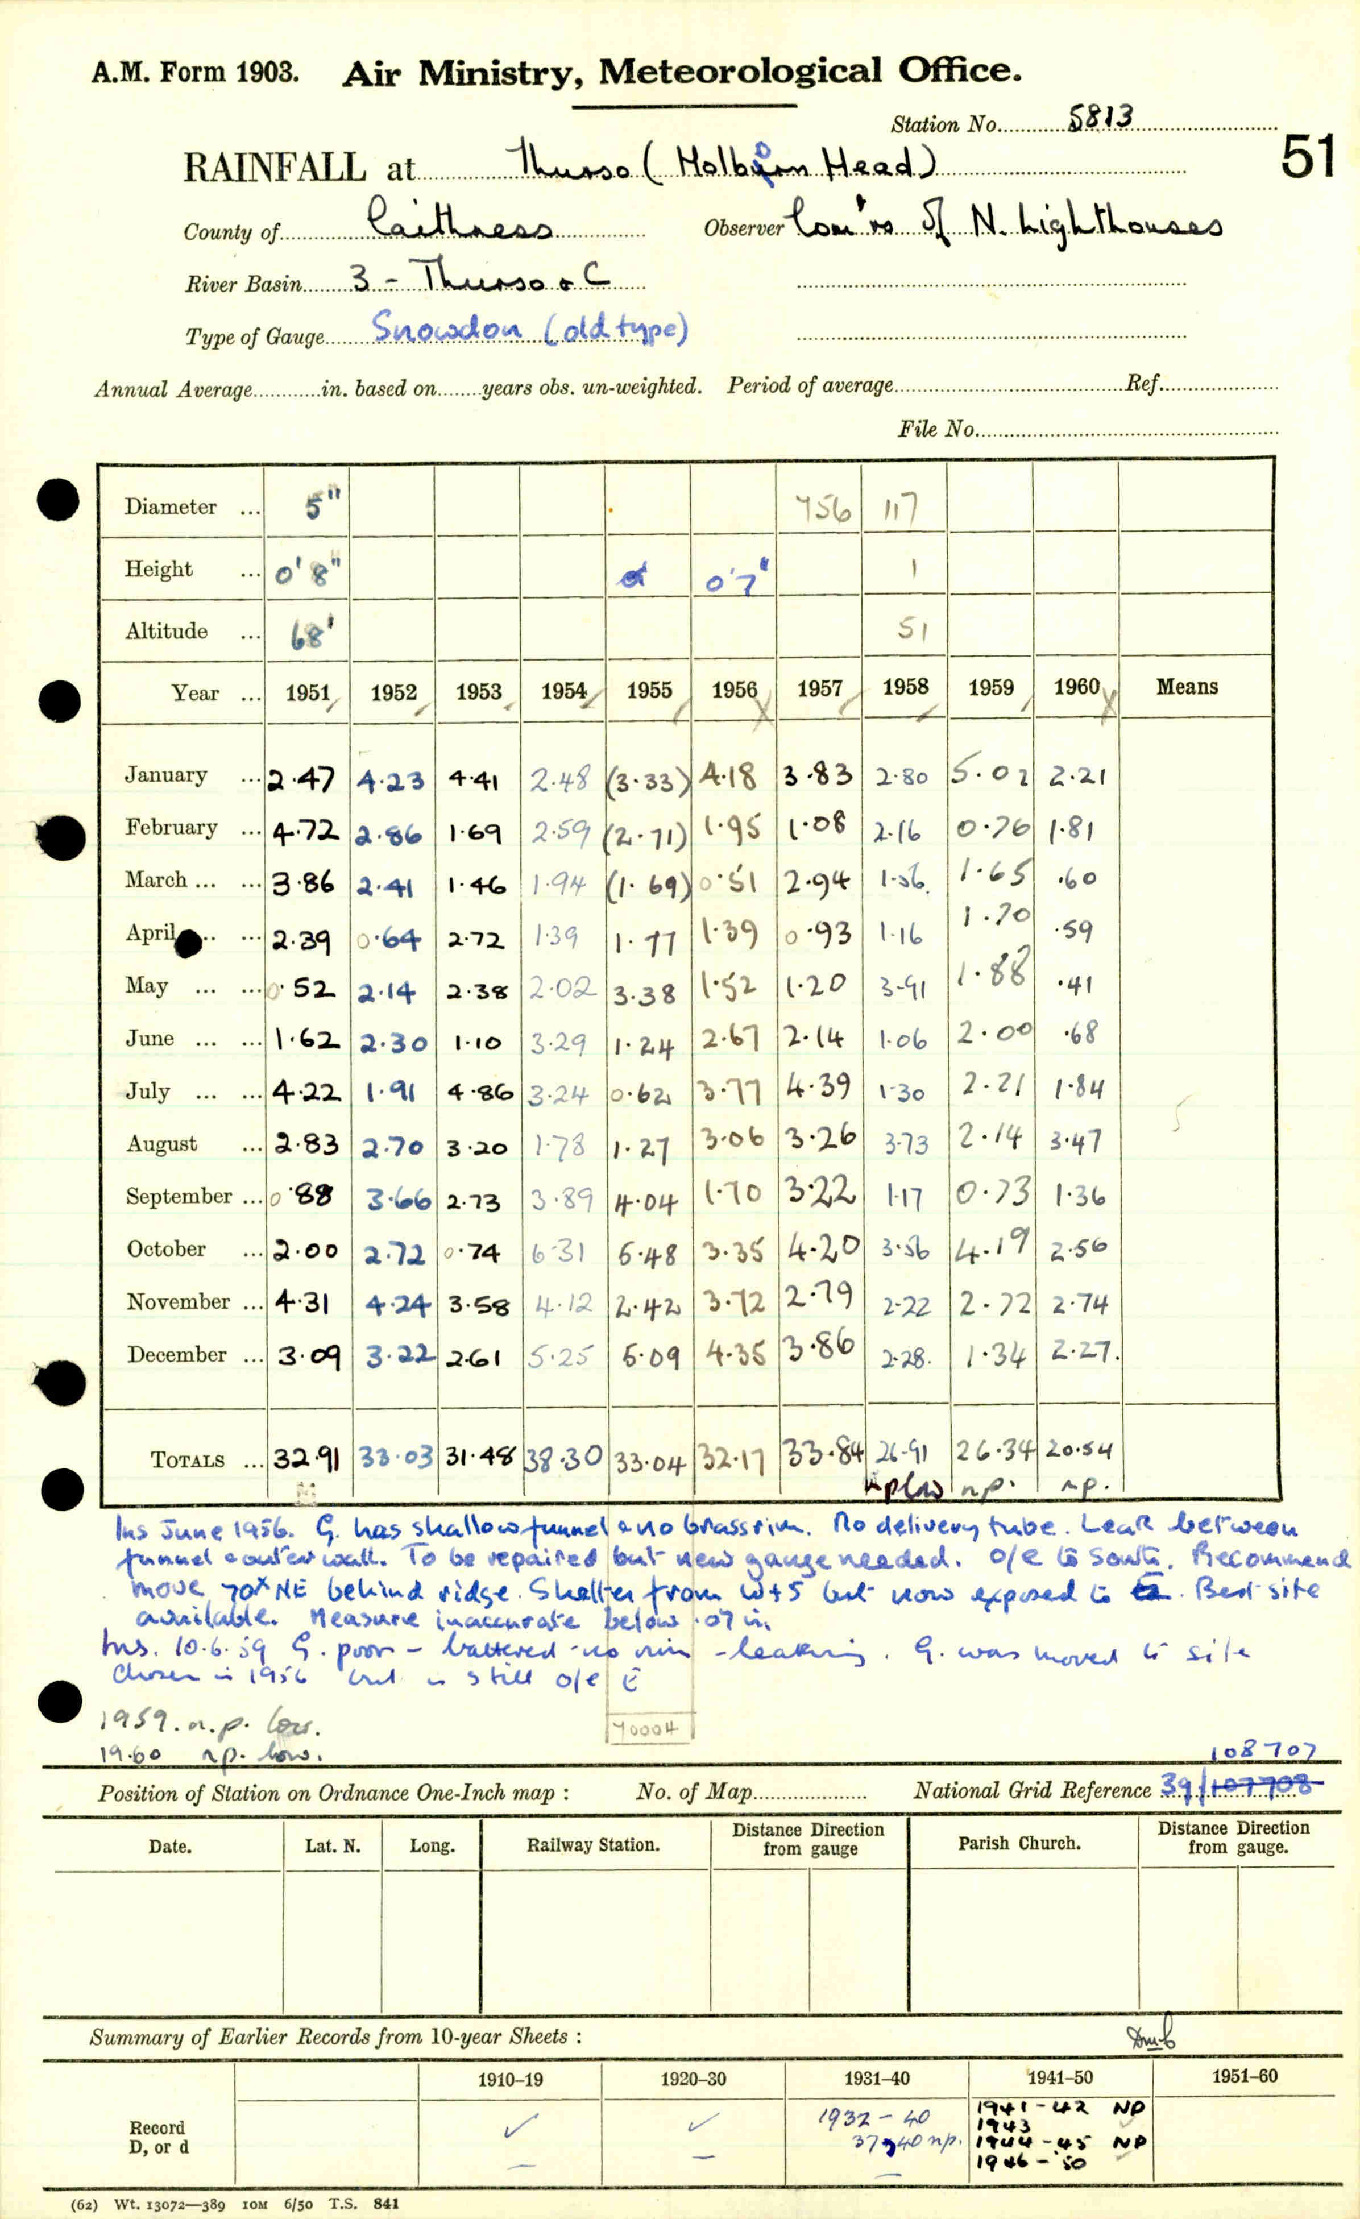 A.M. Form 1903. Air Ministry, Meteorological Office.
Station No. 5813
51
RAINFALL at Thurso (Holborn Head)
County of Caithness Observer Com'rs of N. Lighthouses
River Basin 3 - Thurso & C
Type of Gauge Snowdon (old type)
Annual Average in. based on years obs. un-weighted. Period of average Ref.
File No.
Diameter ... 5" 756 117
Height ... 0'8" 0'7" 1
Altitude ... 68' 51
Year ... 1951 1952 1953 1954 1955 1956 1957 1958 1959 1960 Means
January ... 2.47 4.23 4.41 2.48 (3.33) 4.18 3.83 2.80 5.02 2.21
February ... 4.72 2.86 1.69 2.59 (2.71) 1.95 1.08 2.16 0.76 1.81
March ... ... 3.86 2.41 1.46 1.94 (1.69) 0.51 2.94 1.56 1.65 .60
April ... ... 2.39 0.64 2.72 1.39 1.77 1.39 0.93 1.16 1.70 .59
May ... ... 0.52 2.14 2.38 2.02 3.38 1.52 1.20 3.91 1.88 .41
June ... ... 1.62 2.30 1.10 3.29 1.24 2.67 2.14 1.06 2.00 .68
July ... ... 4.22 1.91 4.86 3.24 0.62 3.77 4.39 1.30 2.21 1.84
August ... 2.83 2.70 3.20 1.78 1.27 3.06 3.26 3.73 2.14 3.47
September ... 0.88 3.66 2.73 3.89 4.04 1.70 3.22 1.17 0.73 1.36
October ... 2.00 2.72 0.74 6.31 5.48 3.35 4.20 3.56 4.19 2.56
November ... 4.31 4.24 3.58 4.12 2.42 3.72 2.79 2.22 2.72 2.74
December ... 3.09 3.22 2.61 5.25 5.09 4.35 3.86 2.28 1.34 2.27
TOTALS ... 32.91 33.03 31.48 38.30 33.04 32.17 33.84 26.91 26.34 20.54
np low n.p. n.p.
Ins June 1956. G. has shallow funnel & no brass rim. No delivery tube. Leak between
funnel & outer wall. To be repaired but new gauge needed. o/e to South. Recommend
move 70x NE behind ridge. Shelter from W+S but now exposed to E. Best site
available. Measure inaccurate below .07 in.
Ins. 10.6.59 G. poor - battered - no rim - leaking. G. was moved to site
chosen in 1956 but is still o/e E
1959. n.p. low.
70004
1960 n.p. low.
108707
Position of Station on Ordnance One-Inch map : No. of Map National Grid Reference 39/107708
Date. Lat. N. Long. Railway Station. Distance Direction from gauge Parish Church. Distance Direction from gauge.
Summary of Earlier Records from 10-year Sheets :
1910–19 1920–30 1931–40 1941–50 1951–60
Record
D, or d
1932 - 40
37,40 n.p.
1941-42 NP
1943
1944-45 NP
1946-50
(62) Wt. 13072—389 10M 6/50 T.S. 841